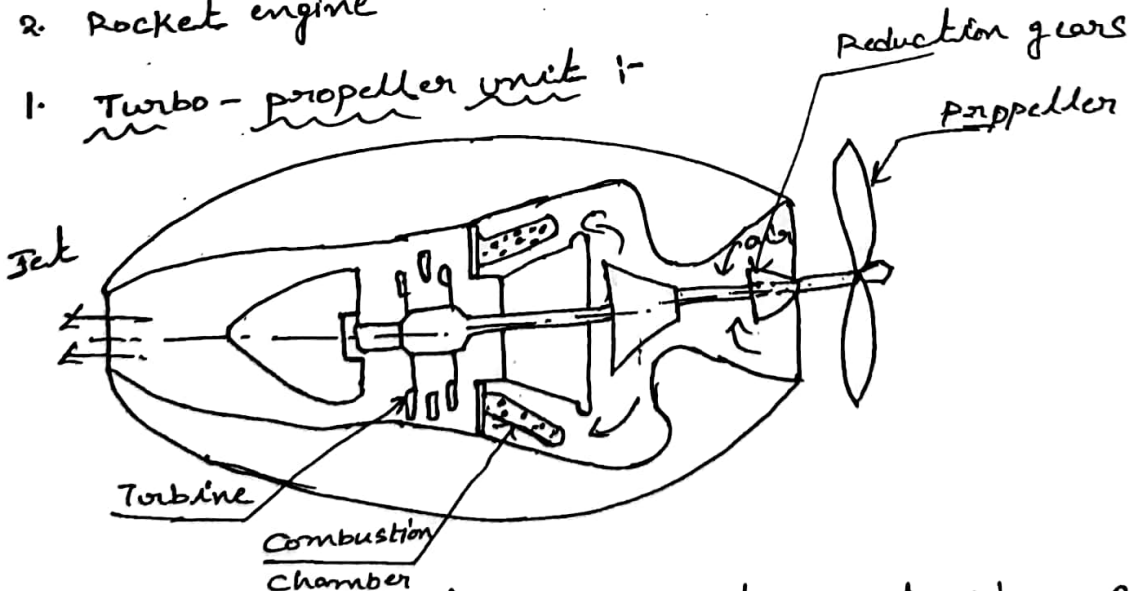 2. Rocket engine
1. Turbo - propeller unit :-
Reduction gears
propeller
air
Jet
Turbine
Combustion
Chamber